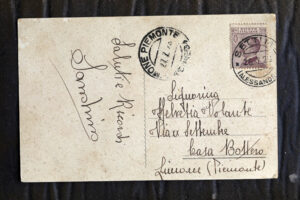 Saluti e Ricordi
MONE PIEMONTE
(ALESSAND
Signorina
Helvetia Volante
Via Settembre
Casa Bottero
Limone (Piemonte)